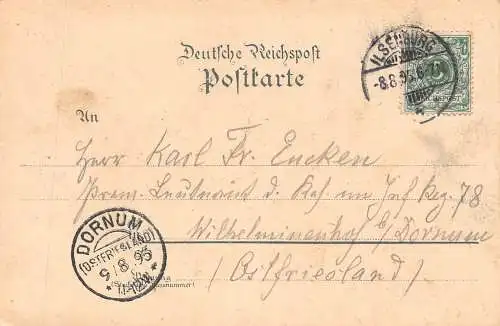 Deutsche Reichspost
Postkarte
ILSENBURG
8.8.95.6
An
Herrn Karl Fr. Eucken
Prem. Leutnant d. Res im Inf Reg. 78
Wilhelminenhof b/ Dornum
(Ostfriesland)
DORNUM
(OSTFRIESLAND)
9/8 95
11-12V